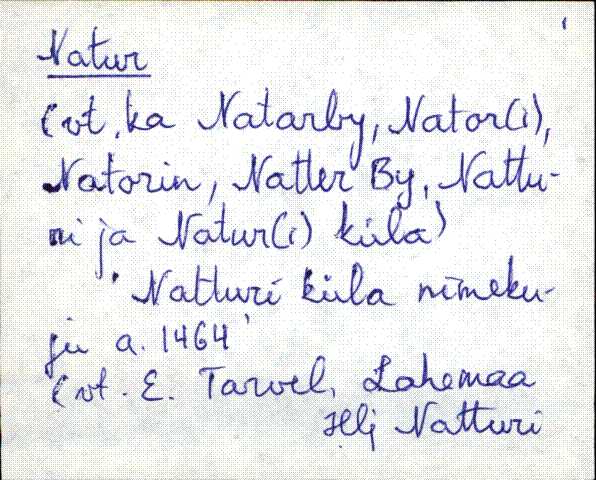 Natur
(vt. ka Natarby, Nator(i),
Natorin, Natter By, Nattu-
ri ja Natur(i) küla)
'Natturi küla nimeku-
ju a. 1464'
(vt. E. Tarvel, Lahemaa
Hlj Natturi